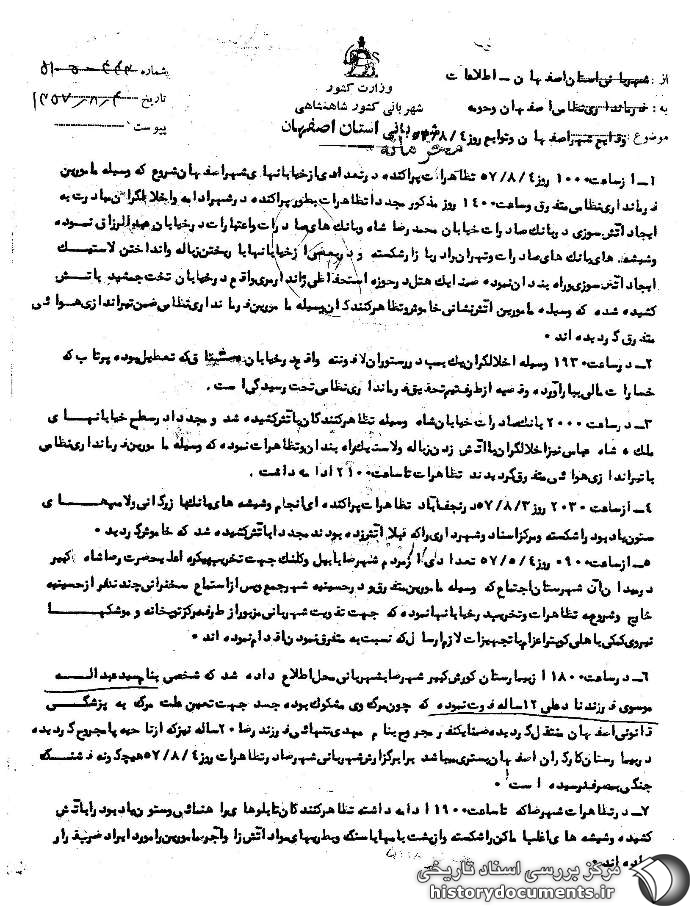 شماره ۴۴۳-۵-۵۱
تاریخ ۱۳۵۷/۸/۴
پیوست
وزارت کشور
شهربانی کشور شاهنشاهی
شهربانی استان اصفهان
محرمانه
از: شهربانی استان اصفهان - اطلاعات
به: فرمانداری نظامی اصفهان وحومه
موضوع: وقایع شهر اصفهان وتوابع روز ۵۷/۸/۴
۱- از ساعت ۱۰۰۰ روز ۵۷/۸/۴ تظاهرات پراکنده در تعدادی از خیابانهای شهر اصفهان شروع که وسیله مامورین
فرمانداری نظامی متفرق وساعت ۱۴۰۰ روز مذکور مجددا تظاهرات بطور پراکنده در شهر ادامه واخلالگران مبادرت به
ایجاد آتش سوزی در بانک صادرات خیابان محمدرضا شاه وبانک های صادرات واعتبارات در خیابان عبدالرزاق نموده
وشیشه های بانک های صادرات وتهران را در بازار شکسته و در بعضی از خیابانها با ریختن زباله وانداختن لاستیک
ایجاد آتش سوزی وراه بندان نموده ضمنا یک هتل در حوزه استحفاظی ژاندارمری واقع در خیابان تخت جمشید بآتش
کشیده شده که وسیله مامورین آتش نشانی خاموش وتظاهرکنندگان بوسیله مامورین فرمانداری نظامی ضمن تیراندازی هوائی
متفرق گردیده اند ۰
۲- در ساعت ۱۹۳۰ وسیله اخلالگران یک بمب در رستوران لافونته واقع در خیابان که تعطیل بوده پرتاب که
خسارات مالی ببار آورده وقضیه از طرف تیم تحقیق فرمانداری نظامی تحت رسیدگی است ۰
۳- در ساعت ۲۰۰۰ بانک صادرات خیابان شاه وسیله تظاهرکنندگان بآتش کشیده شد و مجددا در سطح خیابانهای
ملک شاه عباس نیز اخلالگران با آتش زدن زباله ولاستیک راه بندان وتظاهرات نموده که وسیله مامورین فرمانداری نظامی
با تیراندازی هوائی متفرق گردیدند تظاهرات تا ساعت ۲۱۰۰ ادامه داشت ۰
۴- از ساعت ۲۰۳۰ روز ۵۷/۸/۳ در نجف آباد تظاهرات پراکنده ای انجام وشیشه های بانک بازرگانی ولامپهای
ستون یادبود را شکسته ومرکز اسناد وشهرداری را که قبلا آتش زده بودند مجددا بآتش کشیده شد که خاموش گردید ۰
۵- از ساعت ۰۹۰۰ روز ۵۷/۵/۴ تعدادی از مردم شهرضا با بیل وکلنگ جهت تخریب پیکره اعلیحضرت رضا شاه کبیر
در میدان آن شهرستان اجتماع که وسیله مامورین متفرق و در حسینیه شهر جمع وپس از استماع سخنرانی چند نفر از حسینیه
خارج وشروع به تظاهرات وتخریب در خیابانها نموده که جهت تقویت شهربانی مزبور از طرف مرکز توپخانه و موشکها
نیروی کمکی با هلی کوپتر اعزام با تجهیزات لازم ارسال که نسبت به متفرق نمودن اقدام نموده اند ۰
۶- در ساعت ۱۸۰۰ از بیمارستان کورش کبیر شهرضا بشهربانی محل اطلاع داده شد که شخصی بنام سید عبداله
موسوی فرزند نادعلی ۱۲ ساله فوت نموده که چون مرگ وی مشکوک بوده جسد جهت تعیین علت مرگ به پزشگی
قانونی اصفهان منتقل گردیده وضمنا یکنفر مجروح بنام مهدی تنهائی فرزند رضا ۲۰ ساله نیز که از ناحیه پا مجروح گردیده
در بیمارستان کارگران اصفهان بستری میباشد برابر گزارش شهربانی شهرضا در تظاهرات روز ۵۷/۸/۴ هیچگونه فشنگ
جنگی بمصرف نرسیده است ۰
۷- در تظاهرات شهرضا که تا ساعت ۱۹۰۰ ادامه داشته تظاهرکنندگان تابلوهای راهنمائی وستون یادبود را بآتش
کشیده وشیشه های اغلب اماکن را شکسته واز پشت بامها با سنگ وبطریهای مواد آتش زا وآجر مامورین را مورد ایراد ضرب قرار
داده اند ۰
مرکز بررسی اسناد تاریخی
historydocuments.ir